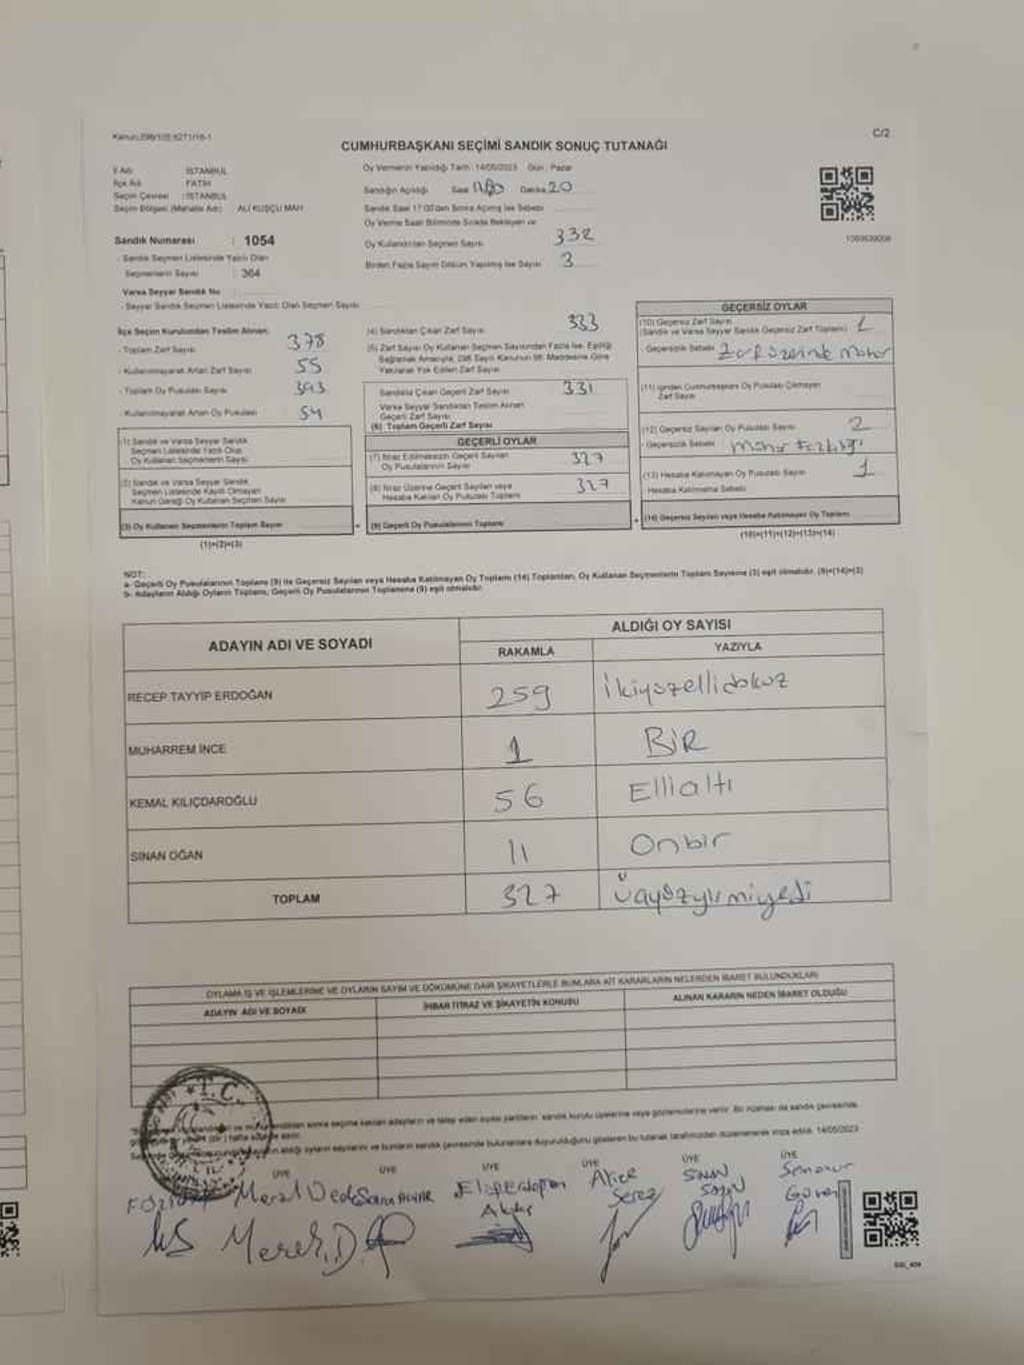 Kanun:298/105;6271/16-1
C/2
CUMHURBAŞKANI SEÇİMİ SANDIK SONUÇ TUTANAĞI
İl Adı : İSTANBUL
İlçe Adı : FATİH
Seçim Çevresi : İSTANBUL
Seçim Bölgesi (Mahalle Adı) : ALİ KUŞÇU MAH.
Sandık Numarası : 1054
- Sandık Seçmen Listesinde Yazılı Olan
Seçmenlerin Sayısı : 364
Varsa Seyyar Sandık No :
- Seyyar Sandık Seçmen Listesinde Yazılı Olan Seçmen Sayısı :
Oy Vermenin Yapıldığı Tarih : 14/05/2023 Gün : Pazar
Sandığın Açıldığı Saat Dakika 20
Sandık Saat 17:00'den Sonra Açılmış İse Sebebi
Oy Verme Saati Bitiminde Sırada Bekleyen ve
Oy Kullandırılan Seçmen Sayısı 332
Birden Fazla Sayım Döküm Yapılmış İse Sayısı 3
1093639006
İlçe Seçim Kurulundan Teslim Alınan:
- Toplam Zarf Sayısı 378
- Kullanılmayarak Artan Zarf Sayısı 55
- Toplam Oy Pusulası Sayısı 393
- Kullanılmayarak Artan Oy Pusulası 54
(1) Sandık ve Varsa Seyyar Sandık
Seçmen Listesinde Yazılı Olup
Oy Kullanan Seçmenlerin Sayısı
(2) Sandık ve Varsa Seyyar Sandık
Seçmen Listesinde Kayıtlı Olmayan
Kanun Gereği Oy Kullanan Seçmen Sayısı
(3) Oy Kullanan Seçmenlerin Toplam Sayısı
(1)+(2)=(3)
(4) Sandıktan Çıkan Zarf Sayısı 333
(5) Zarf Sayısı Oy Kullanan Seçmen Sayısından Fazla İse, Eşitliği
Sağlamak Amacıyla, 298 Sayılı Kanunun 98. Maddesine Göre
Yakılarak Yok Edilen Zarf Sayısı
Sandıkta Çıkan Geçerli Zarf Sayısı 331
Varsa Seyyar Sandıktan Teslim Alınan
Geçerli Zarf Sayısı
(6) Toplam Geçerli Zarf Sayısı
GEÇERLİ OYLAR
(7) İtiraz Edilmeksizin Geçerli Sayılan
Oy Pusulalarının Sayısı 327
(8) İtiraz Üzerine Geçerli Sayılan veya
Hesaba Katılan Oy Pusulası Toplamı 327
(9) Geçerli Oy Pusulalarının Toplamı
GEÇERSİZ OYLAR
(10) Geçersiz Zarf Sayısı
(Sandık ve Varsa Seyyar Sandık Geçersiz Zarf Toplamı) 1
- Geçersizlik Sebebi Zarf üzerinde Mühür
(11) İçinden Cumhurbaşkanı Oy Pusulası Çıkmayan
Zarf Sayısı
(12) Geçersiz Sayılan Oy Pusulası Sayısı 2
- Geçersizlik Sebebi Mühür Fazlalığı
(13) Hesaba Katılmayan Oy Pusulası Sayısı 1
Hesaba Katılmama Sebebi
(14) Geçersiz Sayılan veya Hesaba Katılmayan Oy Toplamı
(10)+(11)+(12)+(13)=(14)
NOT:
a- Geçerli Oy Pusulalarının Toplamı (9) ile Geçersiz Sayılan veya Hesaba Katılmayan Oy Toplamı (14) Toplamları, Oy Kullanan Seçmenlerin Toplam Sayısına (3) eşit olmalıdır. (9)+(14)=(3)
b- Adayların Aldığı Oyların Toplamı, Geçerli Oy Pusulalarının Toplamına (9) eşit olmalıdır.
ADAYIN ADI VE SOYADI ALDIĞI OY SAYISI
RAKAMLA YAZIYLA
RECEP TAYYİP ERDOĞAN 259 ikiyüzellidokuz
MUHARREM İNCE 1 BİR
KEMAL KILIÇDAROĞLU 56 Ellialtı
SİNAN OĞAN 11 Onbir
TOPLAM 327 Üçyüzyirmiyedi
OYLAMA İŞ VE İŞLEMLERİNE VE OYLARIN SAYIM VE DÖKÜMÜNE DAİR ŞİKAYETLERLE BUNLARA AİT KARARLARIN NELERDEN İBARET BULUNDUKLARI
ADAYIN ADI VE SOYADI İHBAR İTİRAZ VE ŞİKAYETİN KONUSU ALINAN KARARIN NEDEN İBARET OLDUĞU
T.C.
sonra seçime katılan adayların ve talep eden siyasi partilerin sandık kurulu üyelerine veya gözlemcilerine verilir. Bir nüshası da sandık çevresinde
aldığı oyların sayılarını ve bunların sandık çevresinde bulunanlara duyurulduğunu gösteren bu tutanak tarafımızdan düzenlenerek imza edildi. 14/05/2023
ÜYE ÜYE ÜYE ÜYE ÜYE ÜYE
Meral Dede
Alice
Serez
SİNAN